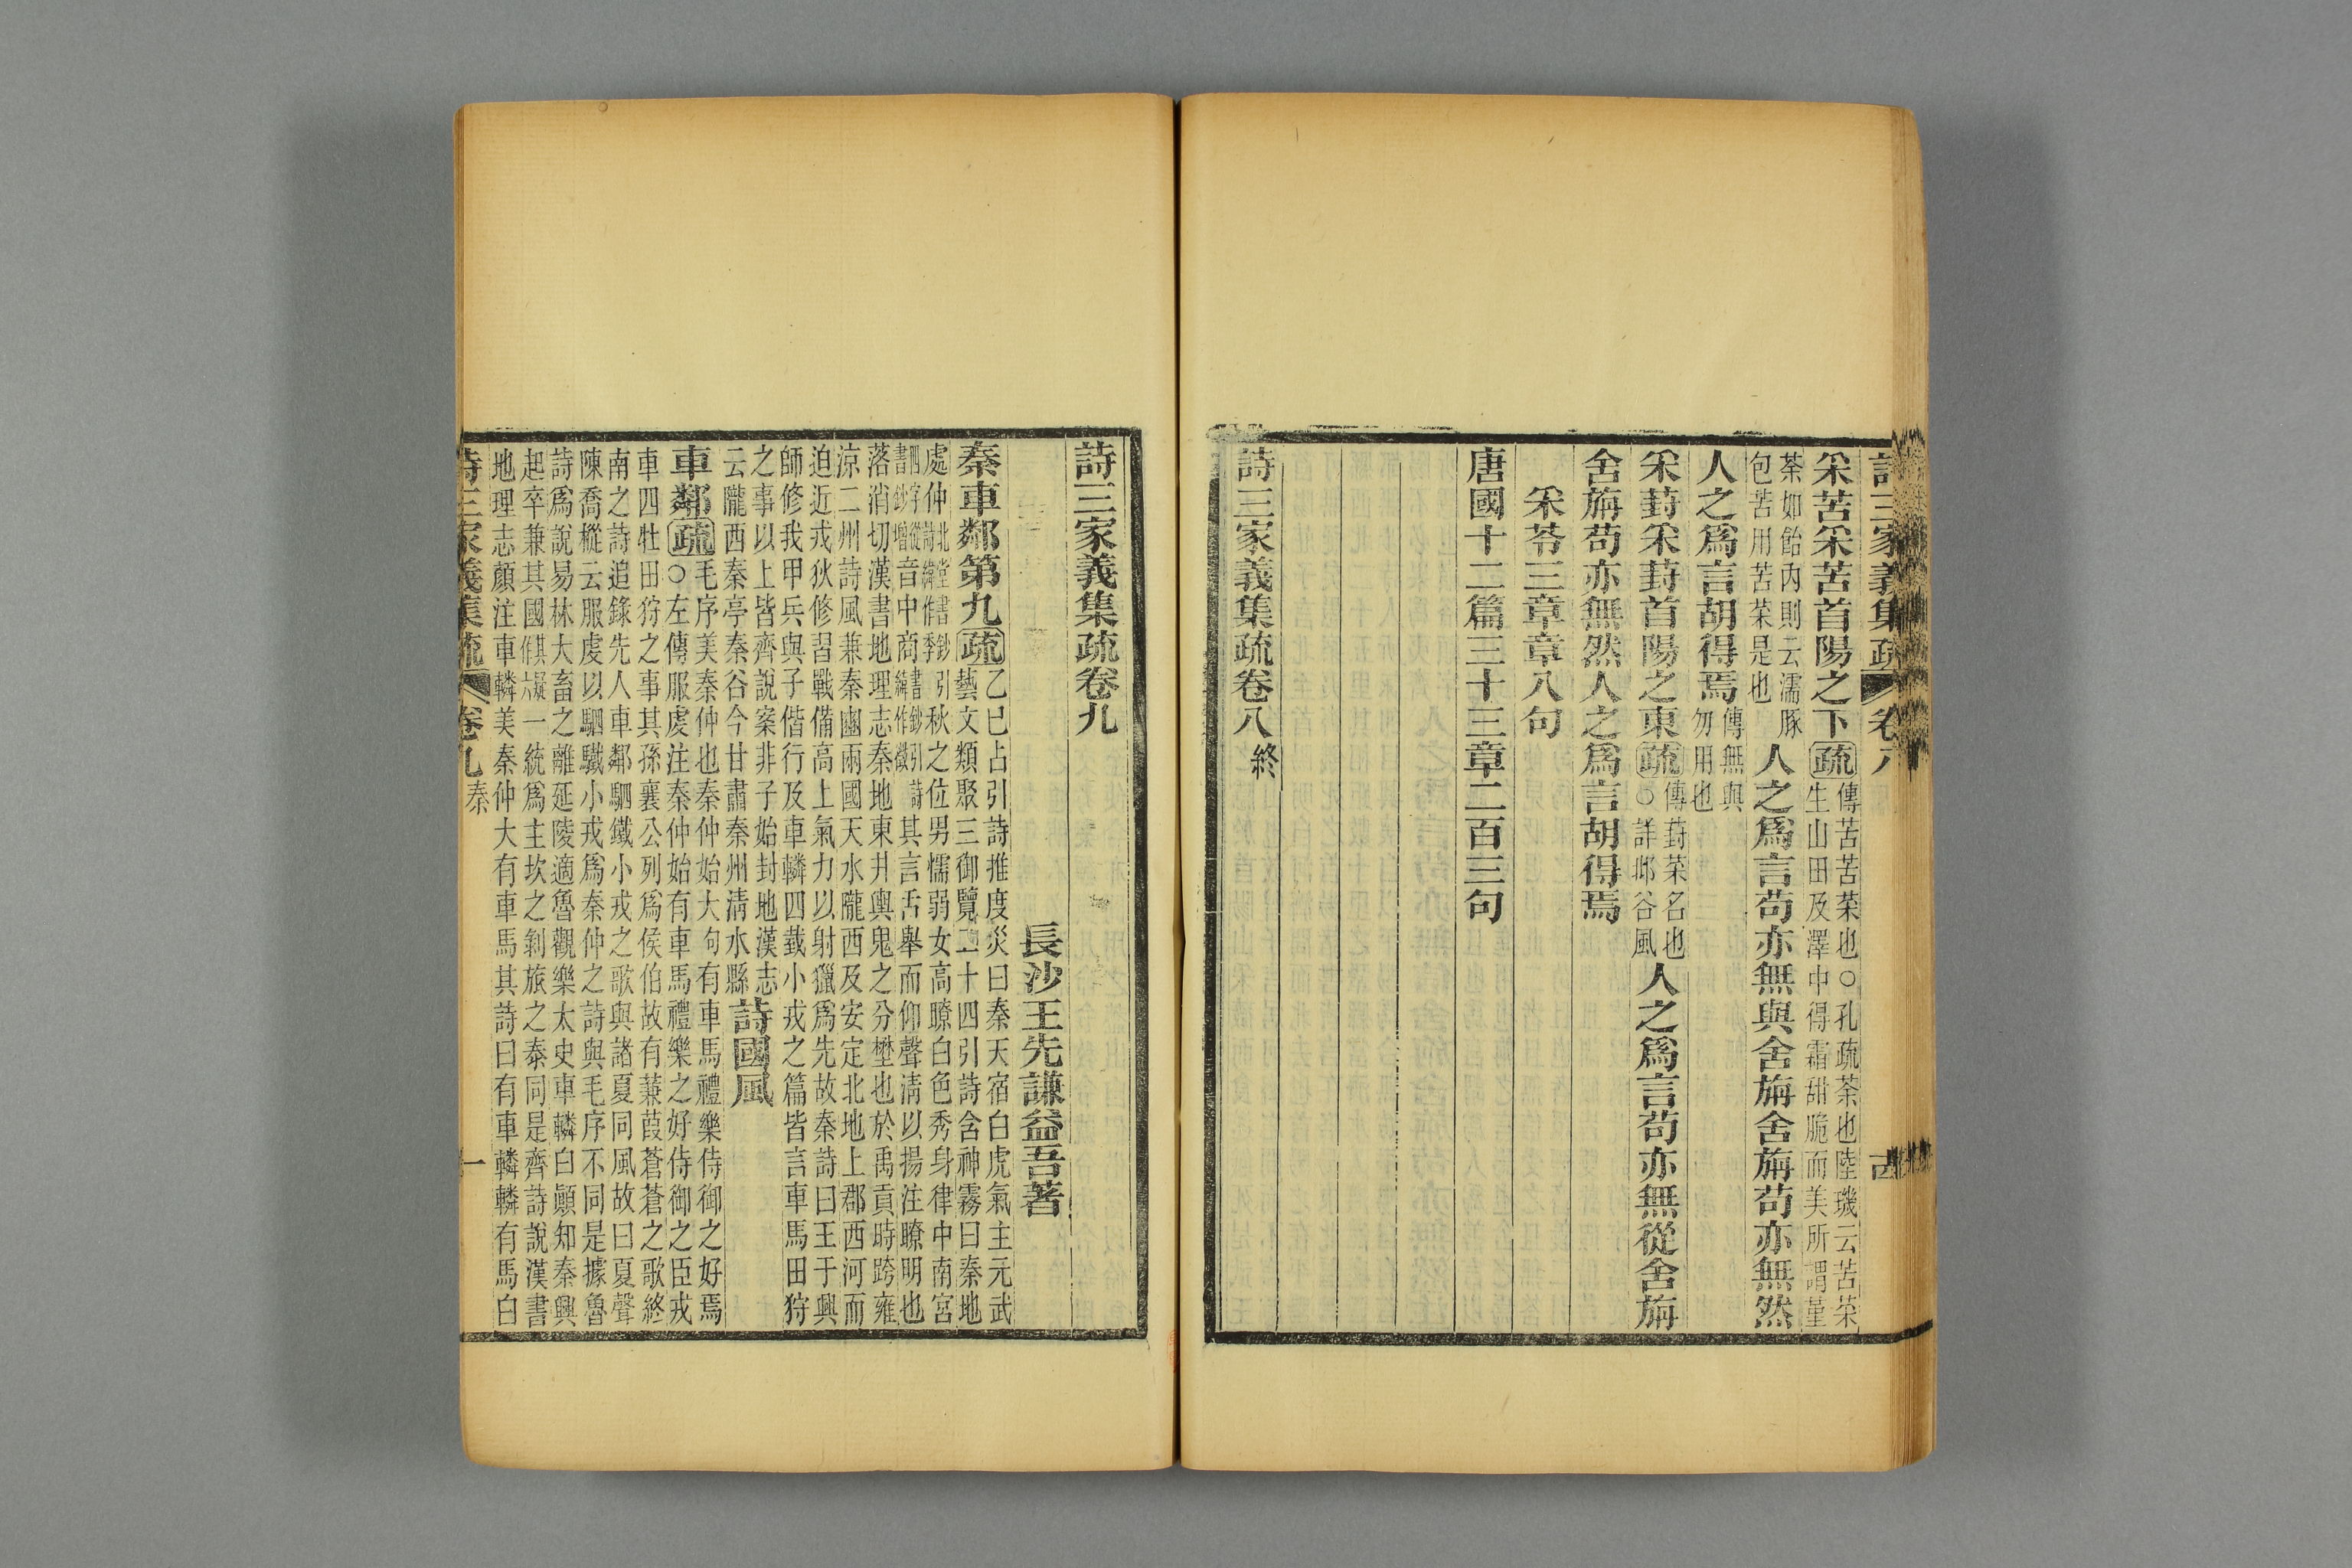 詩三家義集疏 卷八 古
采苦采苦首陽之下疏傳苦苦菜也○孔疏荼也陸璣云苦菜
生山田及澤中得霜甜脆而美所謂堇
荼如飴內則云濡豚
包苦用苦菜是也人之爲言苟亦無與舍旃舍旃苟亦無然
人之爲言胡得焉傳無與
勿用也
采葑采葑首陽之東疏傳葑菜名也
○詳邶谷風人之爲言苟亦無從舍旃
舍旃苟亦無然人之爲言胡得焉
采苓三章章八句
唐國十二篇三十三章二百三句
詩三家義集疏卷八終
詩三家義集疏卷九
長沙王先謙益吾著
秦車鄰第九疏乙巳占引詩推度災曰秦天宿白虎氣主元武
藝文類聚三御覽二十四引詩含神霧曰秦地
處仲北堂書鈔引
詩緯作季秋之位男懦弱女高瞭白色秀身律中南宮
四字從
書鈔增音中商書鈔引詩
緯作徵其言舌舉而仰聲淸以揚注瞭明也
落消切漢書地理志秦地東井輿鬼之分壄也於禹貢時跨雍
涼二州詩風兼秦豳兩國天水隴西及安定北地上郡西河而
迫近戎狄修習戰備高上氣力以射獵爲先故秦詩曰王于興
師修我甲兵與子偕行及車轔四臷小戎之篇皆言車馬田狩
之事以上皆齊說案非子始封地漢志
云隴西秦亭秦谷今甘肅秦州淸水縣詩國風
車鄰疏毛序美秦仲也秦仲始大句有車馬禮樂侍御之好焉
○左傳服虔注秦仲始有車馬禮樂之好侍御之臣戎
車四牡田狩之事其孫襄公列爲侯伯故有蒹葭蒼蒼之歌終
南之詩追錄先人車鄰駟鐵小戎之歌與諸夏同風故曰夏聲
陳喬樅云服虔以駟驖小戎爲秦仲之詩與毛序不同是據魯
詩爲說易林大畜之離延陵適魯觀樂太史車轔白顚知秦興
起卒兼其國疑
作六一統爲主坎之剝旅之泰同是齊詩說漢書
地理志顏注車轔美秦仲大有車馬其詩曰有車轔轔有馬白
詩三家義集疏 卷九 秦 一